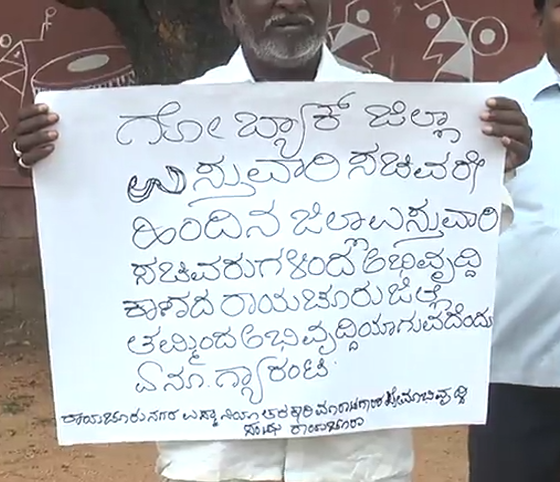 ಗೋ ಬ್ಯಾಕ್ ಜಿಲ್ಲಾ
ಉಸ್ತುವಾರಿ ಸಚಿವರೇ
ಹಿಂದಿನ ಜಿಲ್ಲಾ ಉಸ್ತುವಾರಿ
ಸಚಿವರುಗಳಿಂದ ಅಭಿವೃದ್ದಿ
ಕಾಣದ ರಾಯಚೂರು ಜಿಲ್ಲೆ
ತಮ್ಮಿಂದ ಅಭಿವೃದ್ದಿಯಾಗುವದೆಂದು
ಏನೂ. ಗ್ಯಾರಂಟಿ
ರಾಯಚೂರು ನಗರ ತರಕಾರಿ ಮಾರಾಟಗಾರರ
ಸಂಘ ರಾಯಚೂರು